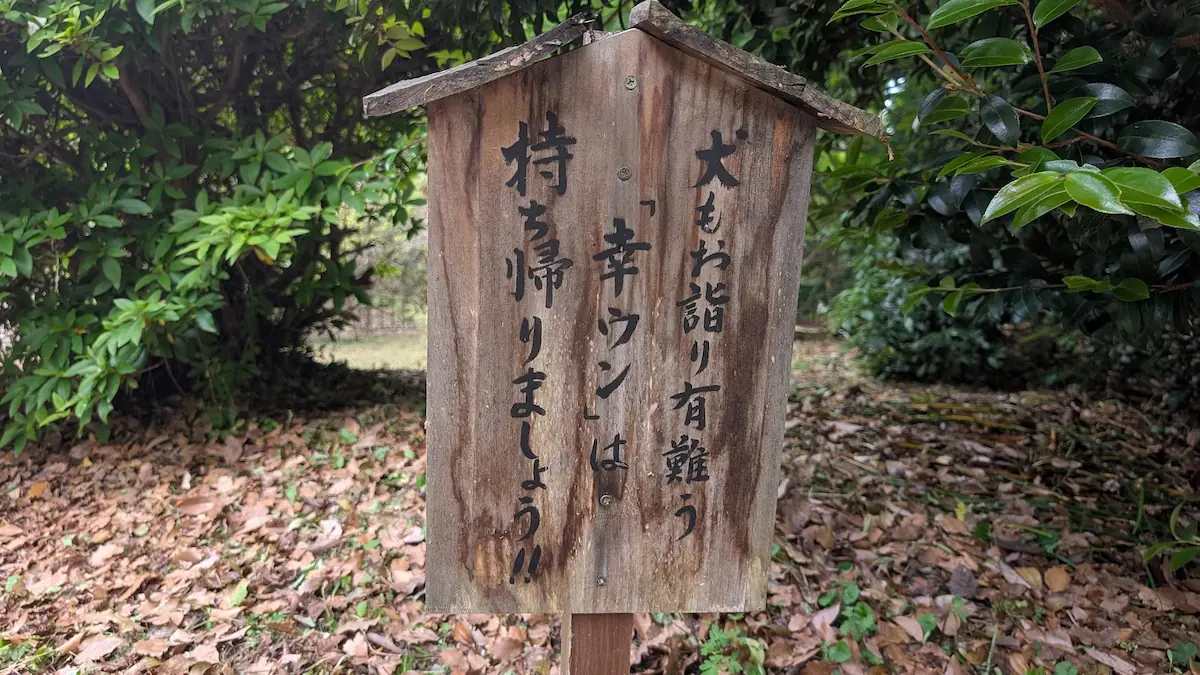 犬もお詣り有難う
「幸ウン」は
持ち帰りましょう!!